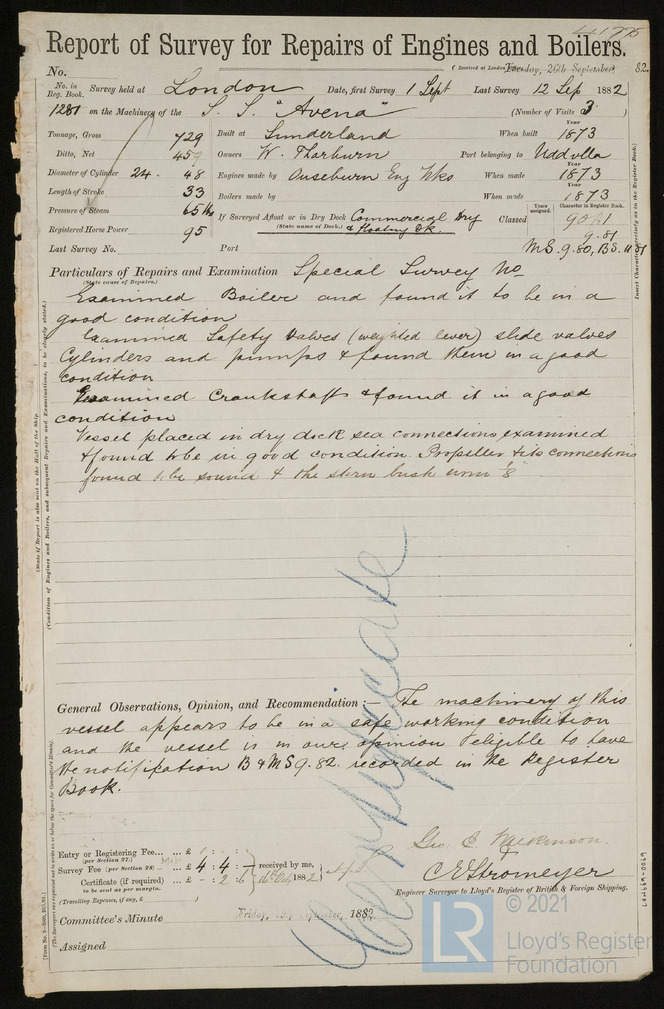 Report of Survey for Repairs of Engines and Boilers.
No. (Received at London Tuesday, 26th September, 82
No. in Reg. Book. Survey held at London Date, first Survey 1 Sept Last Survey 12 Sep 1882
1281 on the Machinery of the S. S. "Avena" (Number of Visits 3)
Tonnage, Gross 729 Built at Sunderland When built Year 1873
Ditto, Net 459 Owners W. Thorburn Port belonging to Uddvlla
Diameter of Cylinder 24 - 48 Engines made by Ouseburn Eng Wks When made Year 1873
Length of Stroke 33 Boilers made by When made Year 1873
Pressure of Steam 65 lbs If Surveyed Afloat or in Dry Dock Commercial Dry Classed Years assigned. Character in Register Book.
(State name of Dock.) & Floating Dk.
Registered Horse Power 95 9.81
Last Survey No. Port MS. 9.80, BS. 11 81
Insert Character precisely as in the Register Book.)
Particulars of Repairs and Examination Special Survey No
(State cause of Repairs.)
Examined Boiler and found it to be in a
good condition
Examined Safety Valves (weighted lever) slide valves
Cylinders and pumps & found them in a good
condition
Examined Crankshaft & found it in a good
condition
Vessel placed in dry dock sea connections examined
& found to be in good condition. Propeller & its connections
found to be sound & the stern bush worn 1/8
(State if Report is also sent on the Hull of the Ship
(Condition of Engines and Boilers, and subsequent Repairs and Examinations, to be clearly stated.)
General Observations, Opinion, and Recommendation :— The machinery of this
vessel appears to be in a safe working condition
and the vessel is in our opinion eligible to have
the notification B & MS 9.82. recorded in the Register
Book.
Certificate
Entry or Registering Fee... ... £
(per Section 27.)
Survey Fee (per Section 28) ... £ 4 : 4 : – received by me,
Certificate (if required) ... £ - : 2 : 6 1882
to be sent as per margin.
(Travelling Expenses, if any, £ )
Geo. C Wilkinson
C E Stromeyer
Engineer Surveyor to Lloyd's Register of British & Foreign Shipping.
Committee's Minute Friday, September, 1882
Assigned
LR
© 2021
Lloyd's Register
Foundation